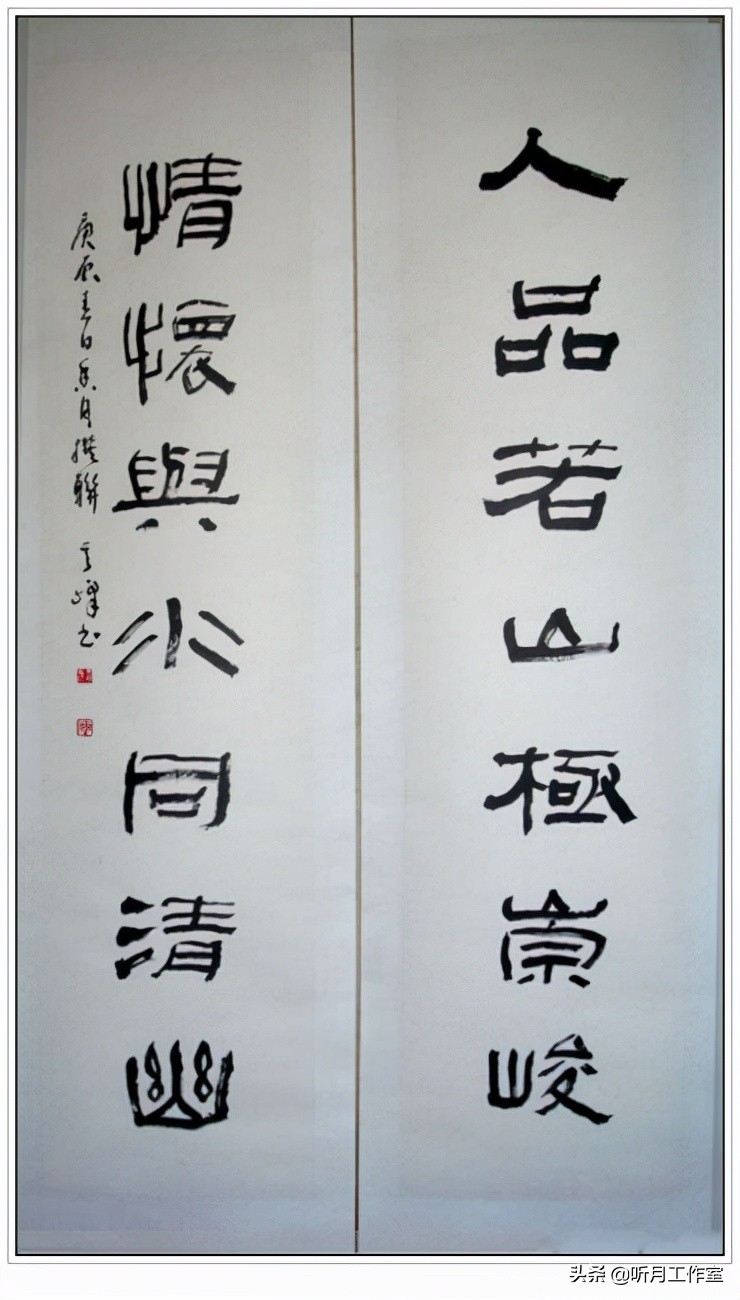 人品若山極崇峻
情懷與水同清幽
庚辰春日月撰聯 峰书
头条 @听月工作室